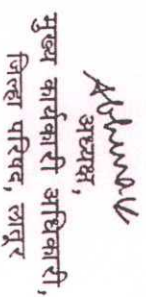 अध्यक्ष,
मुख्य कार्यकारी अधिकारी,
जिल्हा परिषद, लातूर